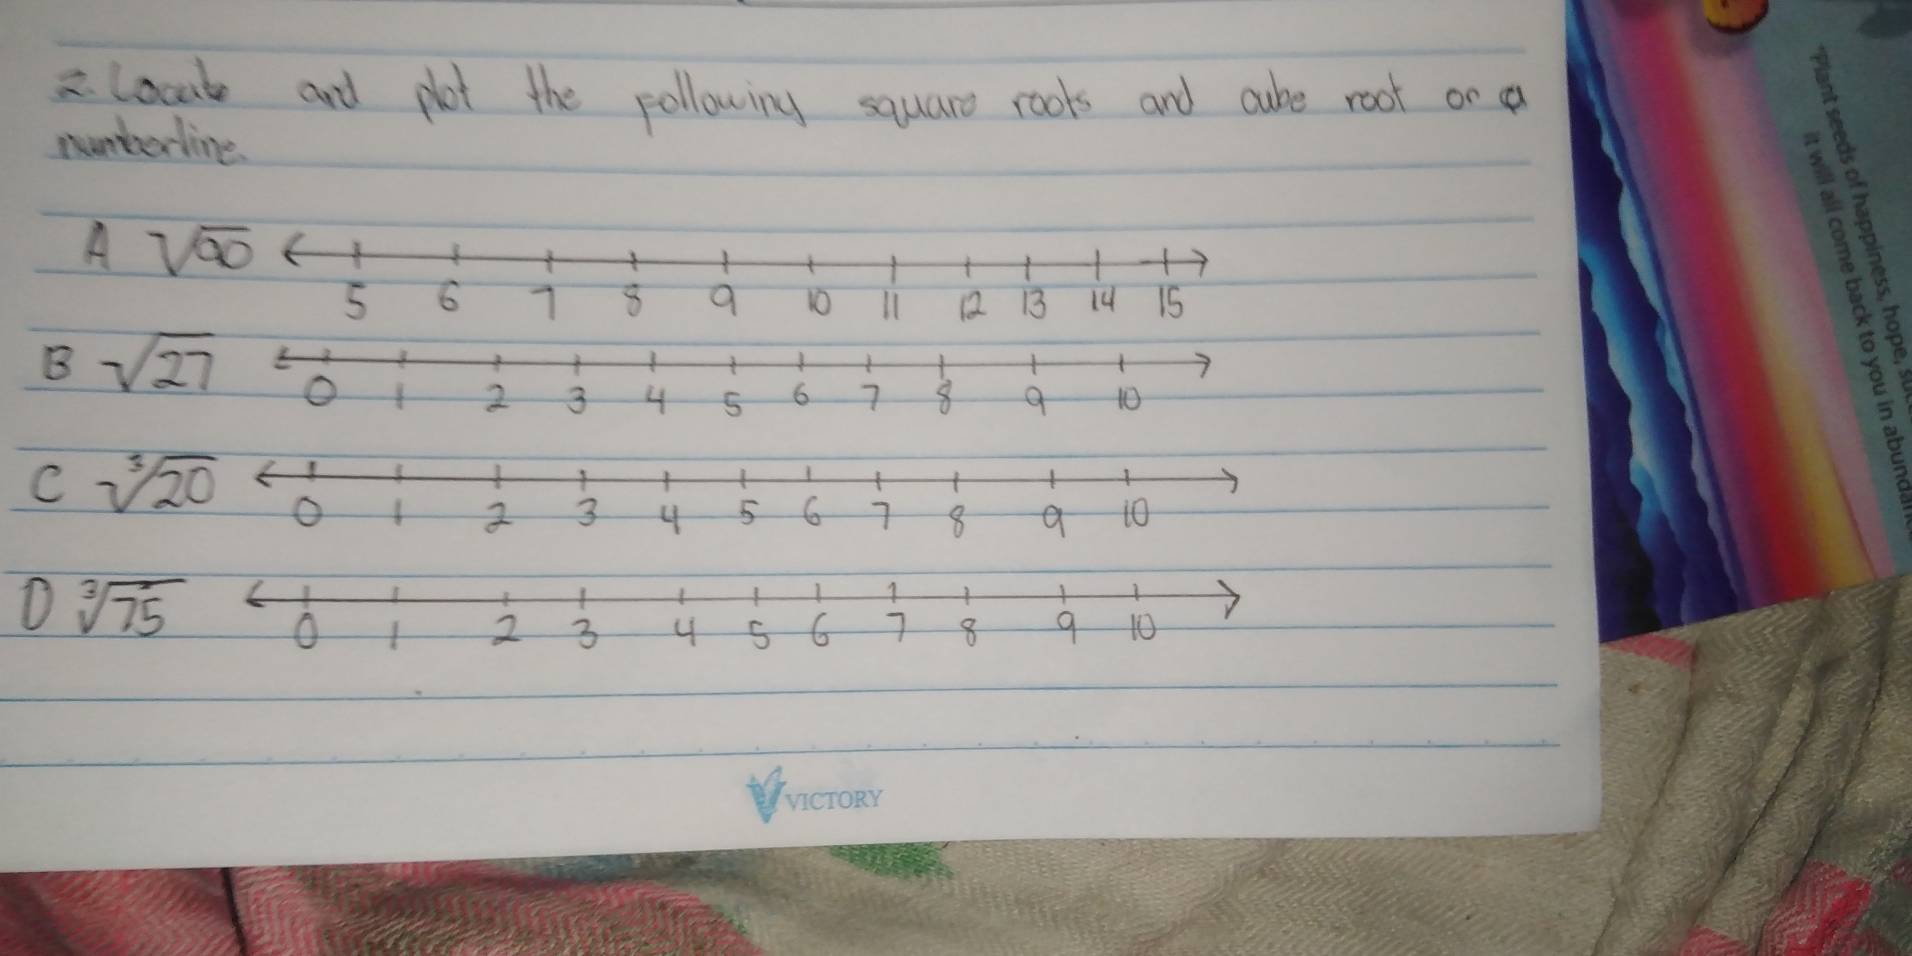 2. Locate and plot the following square roots and cube root on a
numberline.
A √90
5 6 7 8 9 10 11 12 13 14 15
B √27
0 1 2 3 4 5 6 7 8 9 10
C ∛20
0 1 2 3 4 5 6 7 8 9 10
D ∛75
0 1 2 3 4 5 6 7 8 9 10
VICTORY
"Plant seeds of happiness, hope,
it will all come back to you in